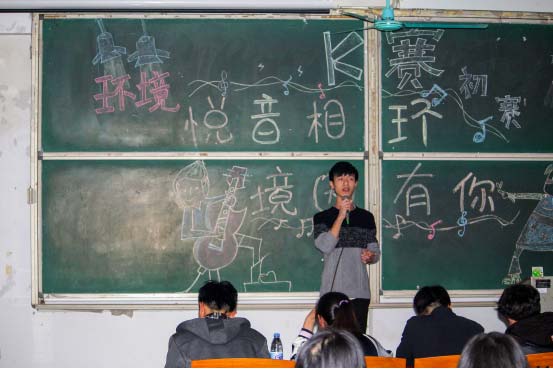 环境 K 赛 初赛
悦音相环
境( 有你